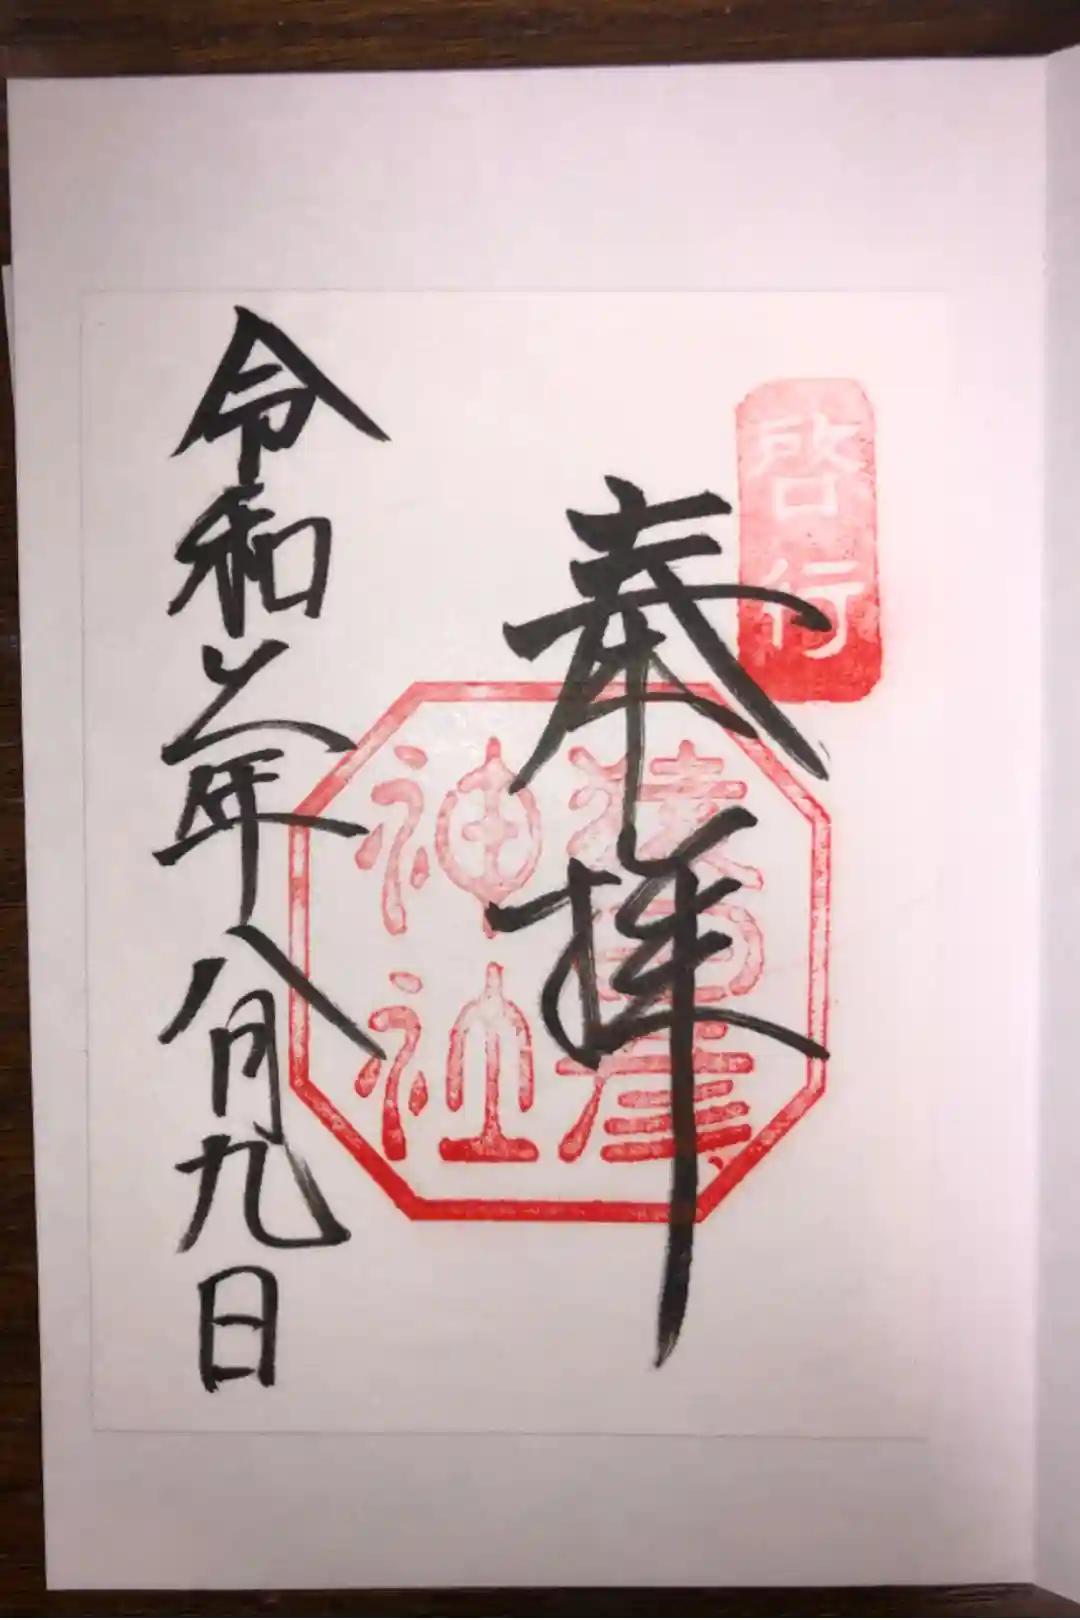 啓行
奉拝
猿田彦
神社
令和六年八月九日